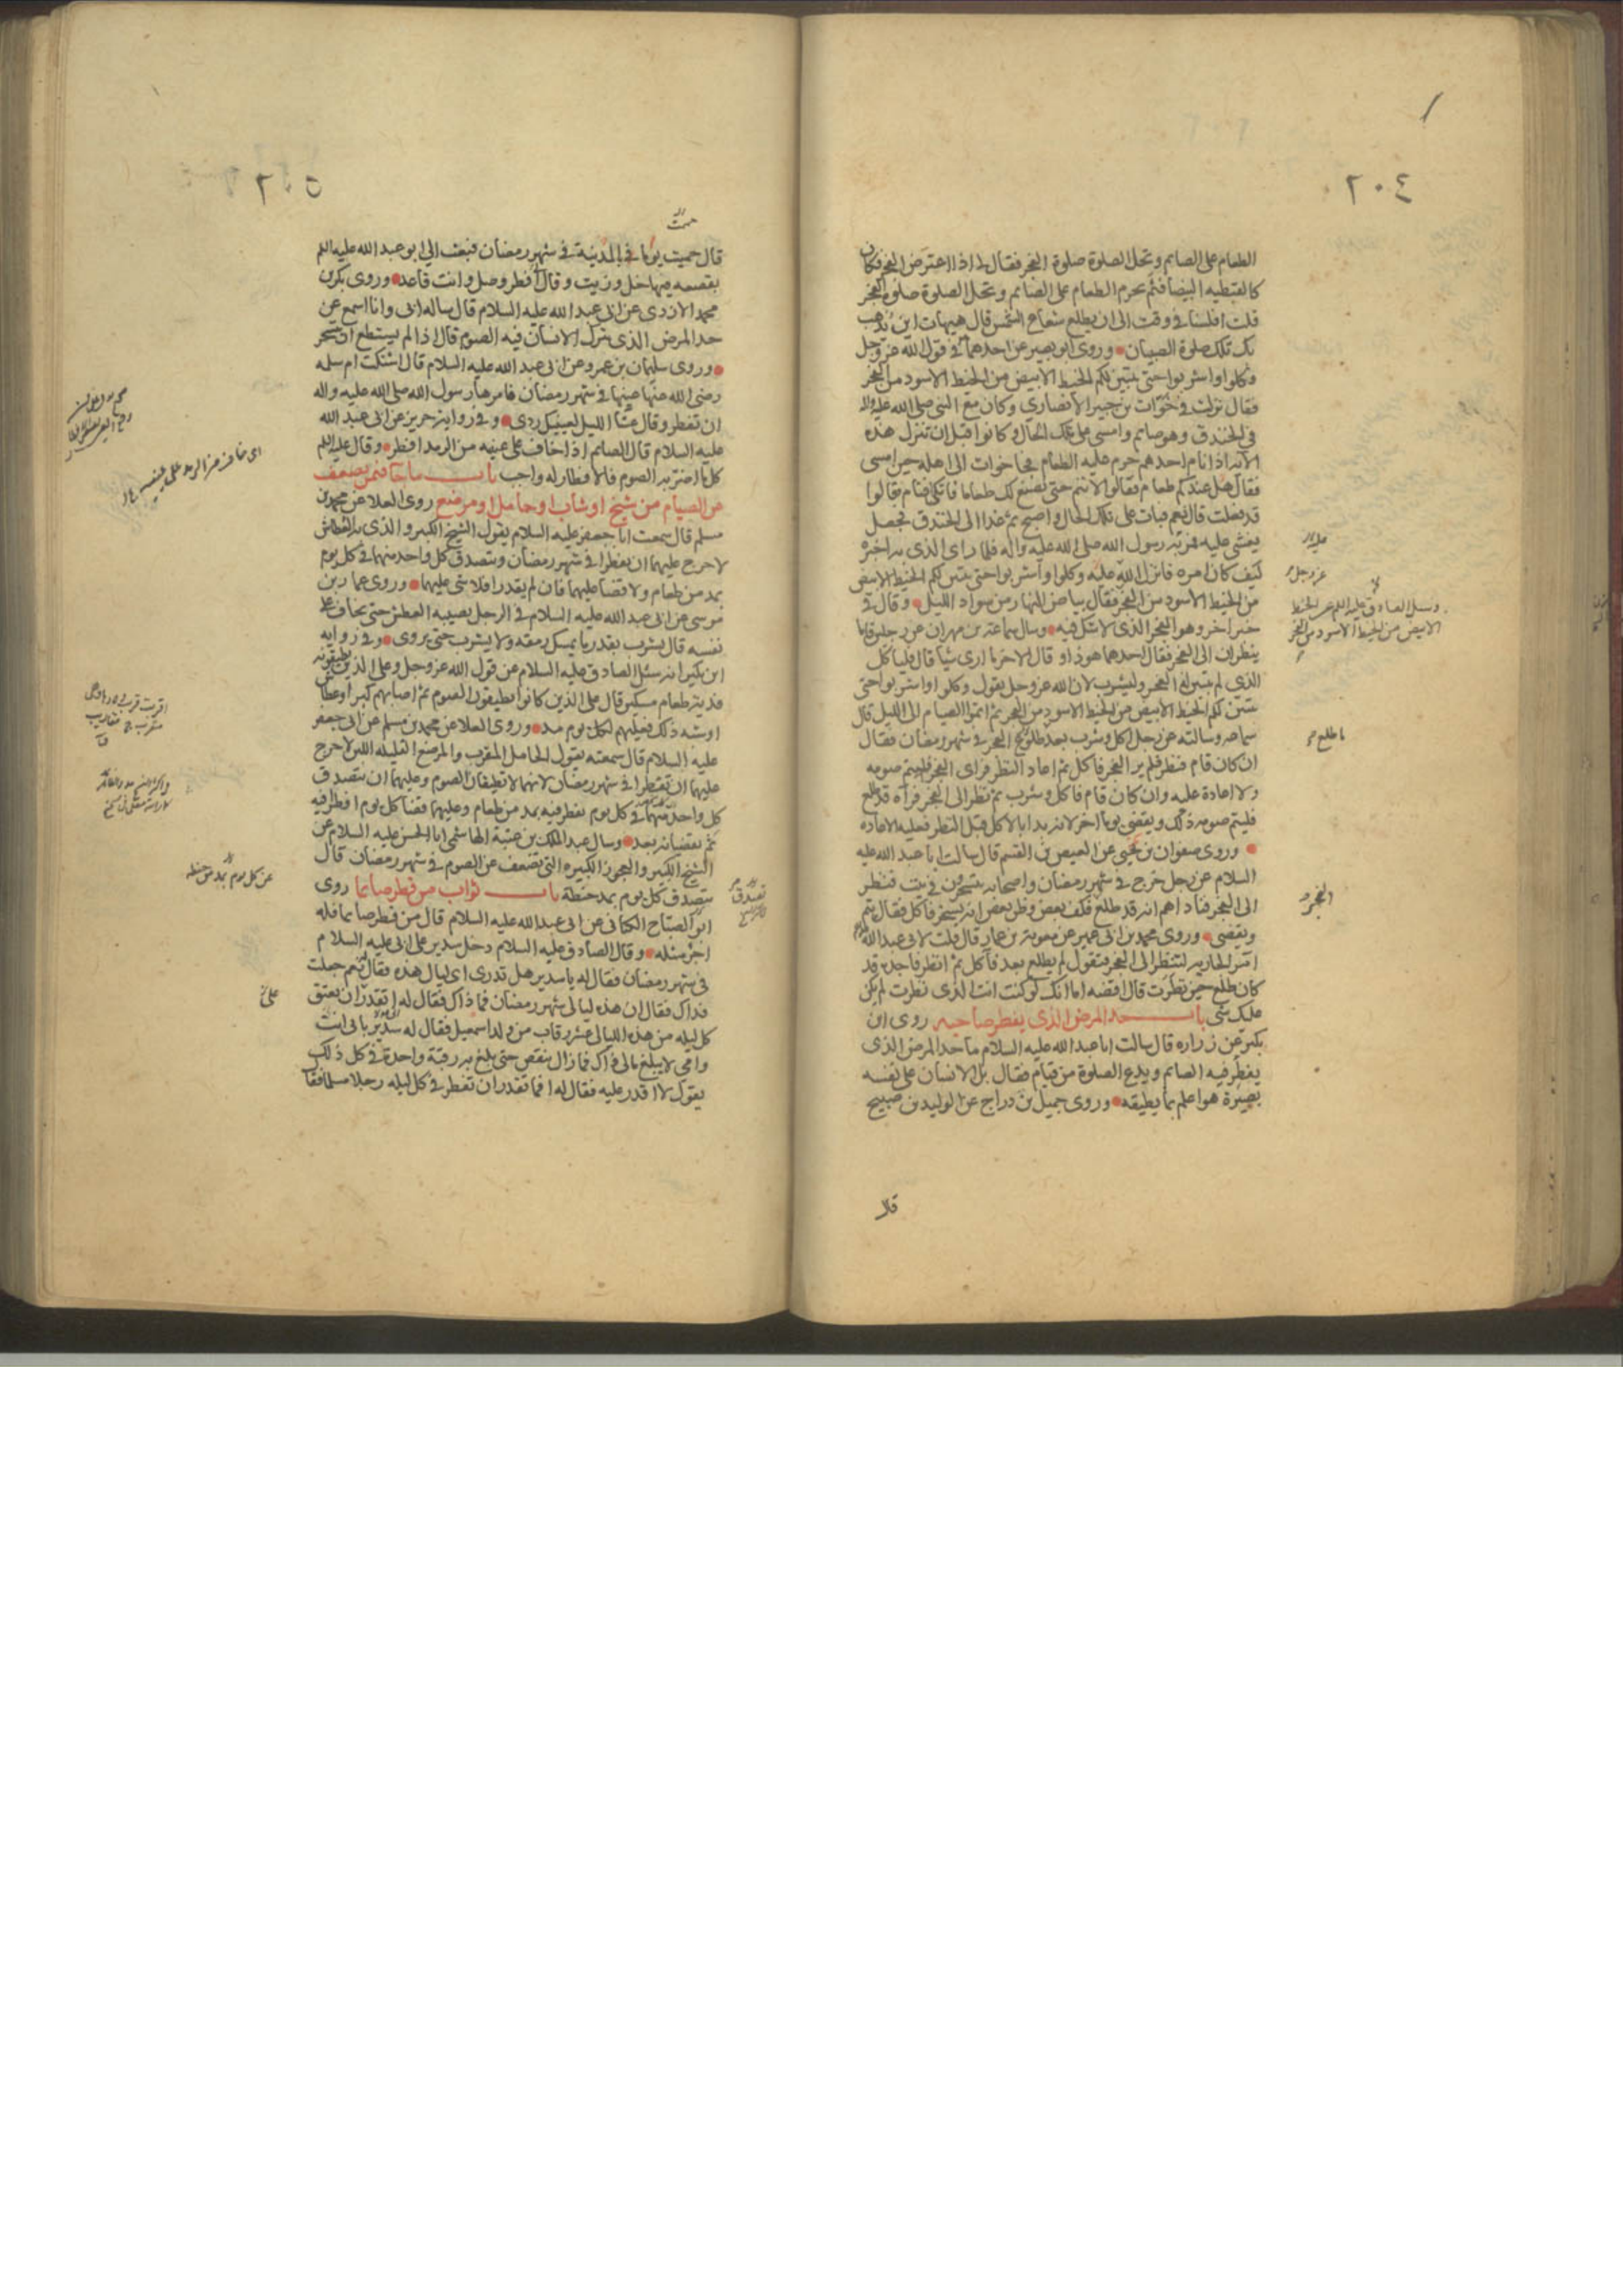 ٢٠٤
الطعام على الصايم وتحل الصلوة صلوة الفجر فقال لى اذا اعترض الفجر فكان
كالقبطيه البيضا فثم يحرم الطعام على الصايم وتحل الصلوة صلوة الفجر
قلت افلسنا فى وقت الى ان يطلع شعاع الشمس قال هيهات اين يذهب
بك تلك صلوة الصبيان وروى ابو بصير عن احدهما فى قول الله عز وجل
وكلوا واشربوا حتى يتبين لكم الخيط الابيض من الخيط الاسود من الفجر
فقال نزلت فى خوّات بن جبير الانصارى وكان مع النبى صلى الله عليه واله
فى الخندق وهو صايم وامسى على تلك الحال وكانوا قبل ان تنزل هذه
الآية اذا نام احدهم حرم عليه الطعام فجا خوات الى اهله حين امسى
فقال هل عندكم طعام فقالوا لا تنم حتى نصنع لك طعاما فاتكى فنام فقالوا
قد فعلت قال نعم فبات على تلك الحال واصبح ثم غدا الى الخندق فجعل
يغشى عليه فمر به رسول الله صلى الله عليه واله فلما راى الذى به اخبره
كيف كان امره فانزل الله عليه وكلوا واشربوا حتى يتبين لكم الخيط الابيض
من الخيط الاسود من الفجر فقال بياض النهار من سواد الليل وقال فى
خبر اخر وهو الفجر الذى لا شك فيه وسال سماعة بن مهران عن رجلين قاما
ينظران الى الفجر فقال احدهما هو ذا وقال الاخر ما ارى شيا قال فلياكل
الذى لم يتبين له الفجر وليشرب لان الله عز وجل يقول وكلوا واشربوا حتى
يتبين لكم الخيط الابيض من الخيط الاسود من الفجر ثم اتموا الصيام الى الليل قال
سماعه وسالته عن رجل اكل وشرب بعد طلوع الفجر فى شهر رمضان فقال
ان كان قام فنظر فلم ير الفجر فاكل ثم اعاد النظر فراى الفجر فليتم صومه
ولا اعادة عليه وان كان قام فاكل وشرب ثم نظر الى الفجر فرآه قد طلع
فليتم صومه ذلك ويقضى يوما اخر لانه بدا بالاكل قبل النظر فعليه الاعاده
وروى صفوان بن يحيى عن العيص بن القسم قال سالت ابا عبد الله عليه
السلام عن رجل خرج فى شهر رمضان واصحابه يتسحرون فى بيت فنظر
الى الفجر فناداهم انه قد طلع فكف بعض وظن بعض انه يسخر فاكل فقال يتم
ويقضى وروى محمد بن ابى عمير عن معوية بن عمار قال قلت لابى عبد الله
آمر الجاريه لتنظر الى الفجر فتقول لم يطلع بعد فآكل ثم انظر فاجده قد
كان طلع حين نظرت قال اقضه اما انك لو كنت انت الذى نظرت لم يكن
عليك شى باب حد المرض الذى يفطر صاحبه روى ابن
بكير عن زراره قال سالت ابا عبد الله عليه السلام ما حد المرض الذى
يفطر فيه الصايم ويدع الصلوة من قيام فقال بل الانسان على نفسه
بصيرة هو اعلم بما يطيقه وروى جميل بن دراج عن الوليد بن صبيح
قال
عز وجل
وسئل الصادق عليه السلم عن الخيط
الابيض من الخيط الاسود من الفجر
ما طلع
الفجر
قال حميت يوما فى المدينة فى شهر رمضان فبعث الى ابو عبد الله عليه السلم
بقصعه فيها خل وزيت وقال افطر وصل وانت قاعد وروى بكر بن
محمد الازدى عن ابى عبد الله عليه السلام قال ساله ابى وانا اسمع عن
حد المرض الذى يترك الانسان فيه الصوم قال اذا لم يستطع ان يتسحر
وروى سليمان بن عمرو عن ابى عبد الله عليه السلام قال اشتكت ام سلمه
رضى الله عنها عينها فى شهر رمضان فامرها رسول الله صلى الله عليه واله
ان تفطر وقال عشا الليل لعينيك ردى وفى رواية حريز عن ابى عبد الله
عليه السلام قال الصايم اذا خاف على عينيه من الرمد افطر وقال عليه السلم
كل ما اضر به الصوم فالافطار له واجب باب ما جآ فيمن يضعف
عن الصيام من شيخ او شاب او حامل او مرضع روى العلا عن محمد بن
مسلم قال سمعت ابا جعفر عليه السلام يقول الشيخ الكبير والذى به العطاش
لا حرج عليهما ان يفطرا فى شهر رمضان ويتصدق كل واحد منهما فى كل يوم
بمد من طعام ولا قضآ عليهما فان لم يقدرا فلا شى عليهما وروى عمار بن
موسى عن ابى عبد الله عليه السلام فى الرجل يصيبه العطش حتى يخاف على
نفسه قال يشرب بقدر ما يمسك رمقه ولا يشرب حتى يروى وفى رواية
ابن بكير انه سئل الصادق عليه السلام عن قول الله عز وجل وعلى الذين يطيقونه
فدية طعام مسكين قال على الذين كانوا يطيقون الصوم ثم اصابهم كبر او عطاش
او شبه ذلك فعليهم لكل يوم مد وروى العلا عن محمد بن مسلم عن ابى جعفر
عليه السلام قال سمعته يقول الحامل المقرب والمرضع القليله اللبن لا حرج
عليهما ان تفطرا فى شهر رمضان لانهما لا تطيقان الصوم وعليهما ان تتصدق
كل واحد منهما فى كل يوم تفطر فيه بمد من طعام وعليهما قضآ كل يوم افطرا فيه
ثم تقضيانه بعد وسال عبد الملك بن عتبة الهاشمى ابا الحسن عليه السلام عن
الشيخ الكبير والعجوز الكبيره التى تضعف عن الصوم فى شهر رمضان قال
يتصدق كل يوم بمد حنطة باب ثواب من فطر صايما روى
ابو الصباح الكنانى عن ابى عبد الله عليه السلام قال من فطر صايما فله
اجر مثله وقال الصادق عليه السلام دخل سدير على ابى عليه السلام
فى شهر رمضان فقال له يا سدير هل تدرى اى ليال هذه فقال نعم جعلت
فداك فقال ان هذه ليالى شهر رمضان فما ذاك فقال له اتقدر ان تعتق
كل ليله من هذه الليالى عشر رقاب من ولد اسمعيل فقال له سدير بابى انت
وامى لا يبلغ مالى ذاك فما زال ينقص حتى بلغ به رقبة واحدة فى كل ذلك
يقول لا اقدر عليه فقال له افما تقدر ان تفطر فى كل ليله رجلا مسلما فقا
عن كل يوم بمد من حنطه
تصدق